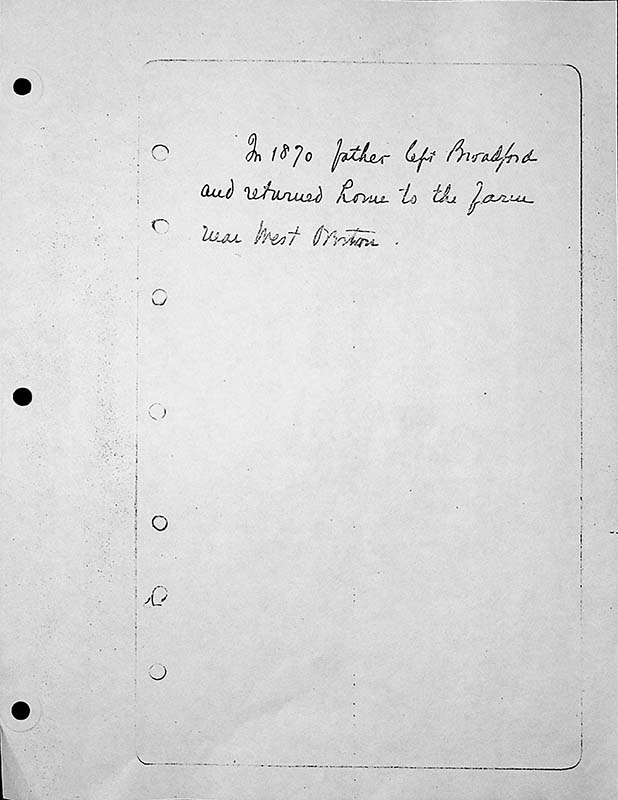 In 1870 father left Bradford
and returned home to the farm
near West